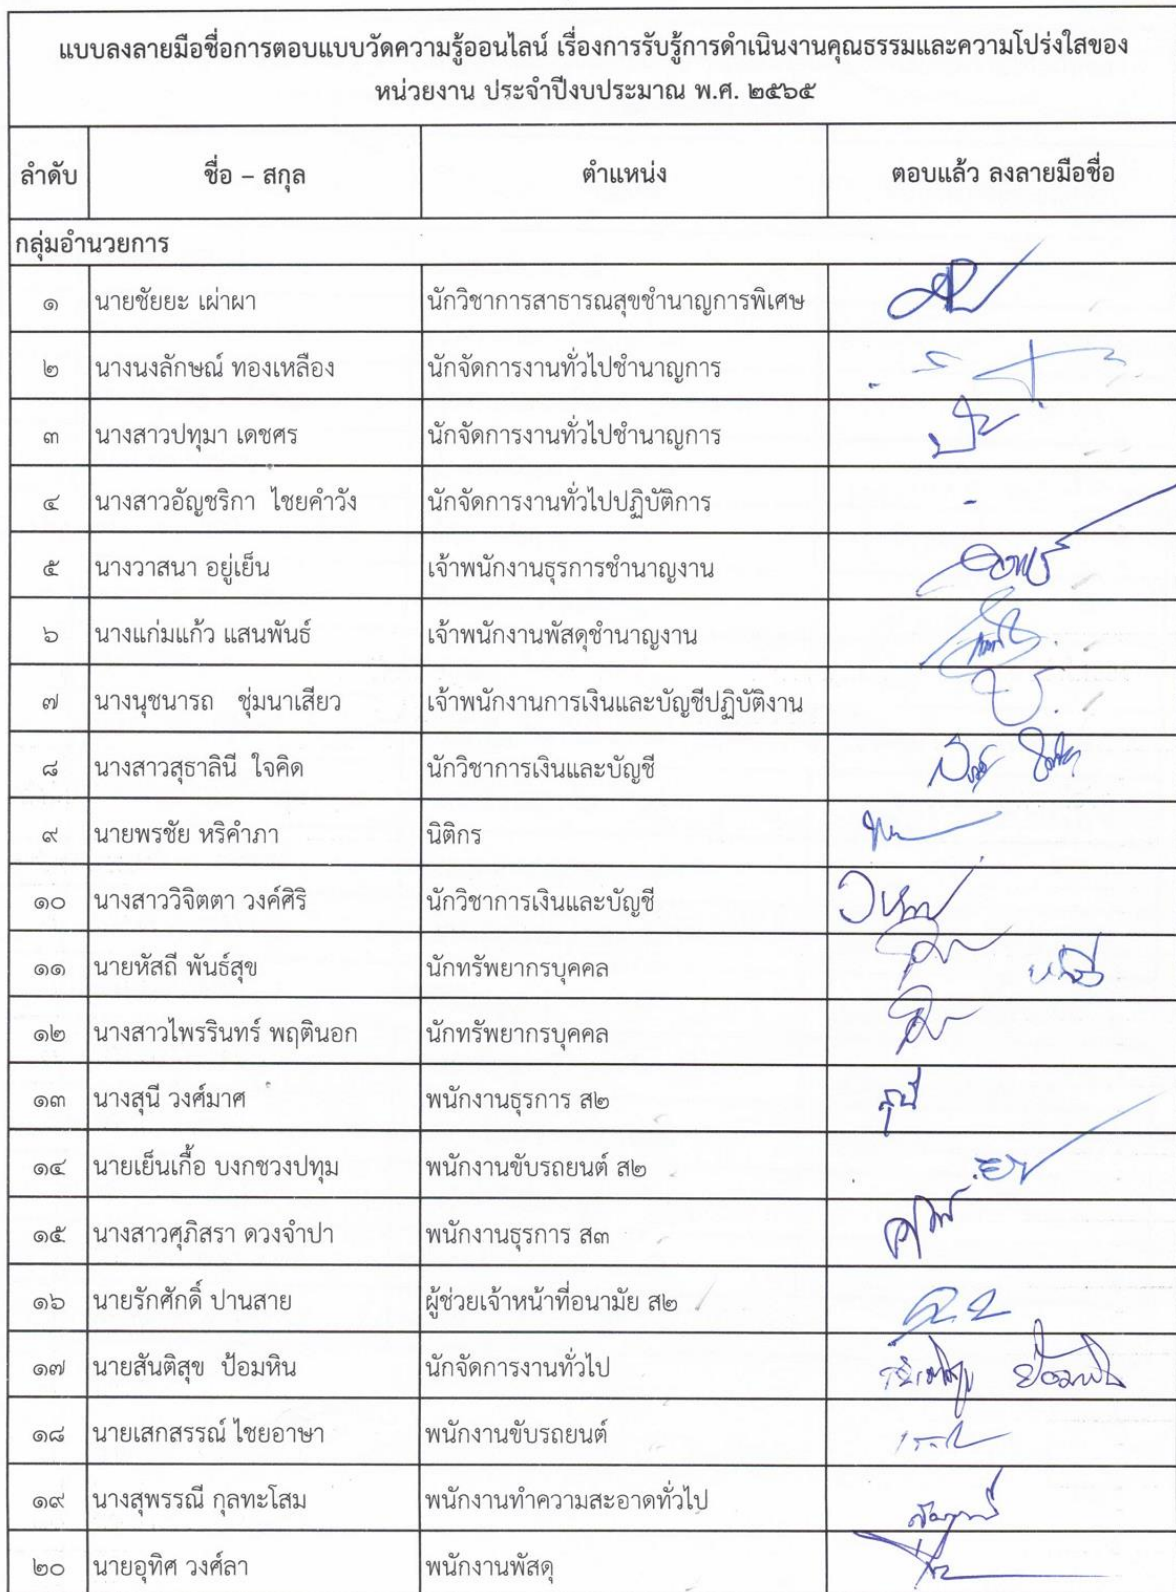 แบบลงลายมือชื่อการตอบแบบวัดความรู้ออนไลน์ เรื่องการรับรู้การดำเนินงานคุณธรรมและความโปร่งใสของ
หน่วยงาน ประจำปีงบประมาณ พ.ศ. ๒๕๖๕
ลำดับ ชื่อ – สกุล ตำแหน่ง ตอบแล้ว ลงลายมือชื่อ
กลุ่มอำนวยการ
๑ นายชัยยะ เผ่าผา นักวิชาการสาธารณสุขชำนาญการพิเศษ
๒ นางนงลักษณ์ ทองเหลือง นักจัดการงานทั่วไปชำนาญการ
๓ นางสาวปทุมา เดชศร นักจัดการงานทั่วไปชำนาญการ
๔ นางสาวอัญชริกา ไชยคำวัง นักจัดการงานทั่วไปปฏิบัติการ -
๕ นางวาสนา อยู่เย็น เจ้าพนักงานธุรการชำนาญงาน
๖ นางแก่มแก้ว แสนพันธ์ เจ้าพนักงานพัสดุชำนาญงาน
๗ นางนุชนารถ ชุ่มนาเสียว เจ้าพนักงานการเงินและบัญชีปฏิบัติงาน
๘ นางสาวสุธาลินี ใจคิด นักวิชาการเงินและบัญชี
๙ นายพรชัย หริคำภา นิติกร
๑๐ นางสาววิจิตตา วงค์ศิริ นักวิชาการเงินและบัญชี
๑๑ นายหัสถี พันธ์สุข นักทรัพยากรบุคคล
๑๒ นางสาวไพรรินทร์ พฤตินอก นักทรัพยากรบุคคล
๑๓ นางสุนี วงศ์มาศ พนักงานธุรการ ส๒ สุนี
๑๔ นายเย็นเกื้อ บงกชวงปทุม พนักงานขับรถยนต์ ส๒
๑๕ นางสาวศุภิสรา ดวงจำปา พนักงานธุรการ ส๓
๑๖ นายรักศักดิ์ ปานสาย ผู้ช่วยเจ้าหน้าที่อนามัย ส๒
๑๗ นายสันติสุข ป้อมหิน นักจัดการงานทั่วไป
๑๘ นายเสกสรรณ์ ไชยอาษา พนักงานขับรถยนต์
๑๙ นางสุพรรณี กุลทะโสม พนักงานทำความสะอาดทั่วไป
๒๐ นายอุทิศ วงศ์ลา พนักงานพัสดุ